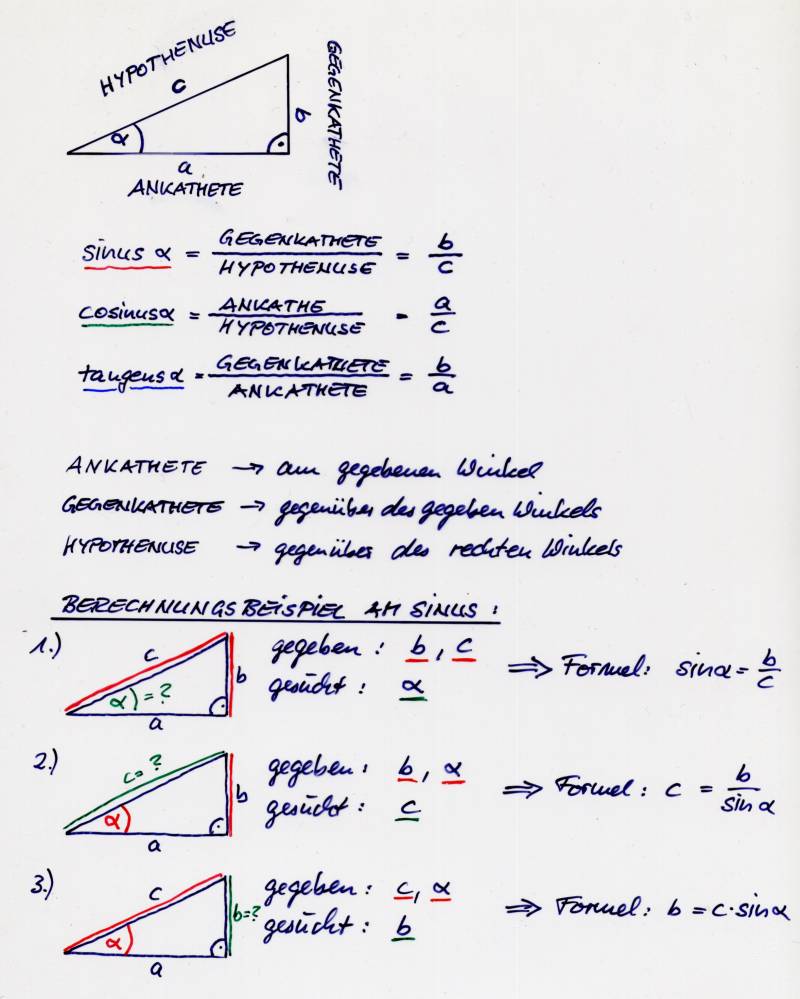 HYPOTHENUSE
GEGENKATHETE
c
b
α
a
ANKATHETE
sinus α = GEGENKATHETE / HYPOTHENUSE = b / c
cosinus α = ANKATHE / HYPOTHENUSE - a / c
tangens α = GEGENKATHETE / ANKATHETE = b / a
ANKATHETE → am gegebenen Winkel
GEGENKATHETE → gegenüber des gegeben Winkels
HYPOTHENUSE → gegenüber des rechten Winkels
BERECHNUNGSBEISPIEL AM SINUS:
1.) c b α = ? a
gegeben: b, c ⇒ Formel: sin α = b / c
gesucht: α
2.) c = ? b α a
gegeben: b, α ⇒ Formel: c = b / sin α
gesucht: c
3.) c b = ? α a
gegeben: c, α ⇒ Formel: b = c · sin α
gesucht: b